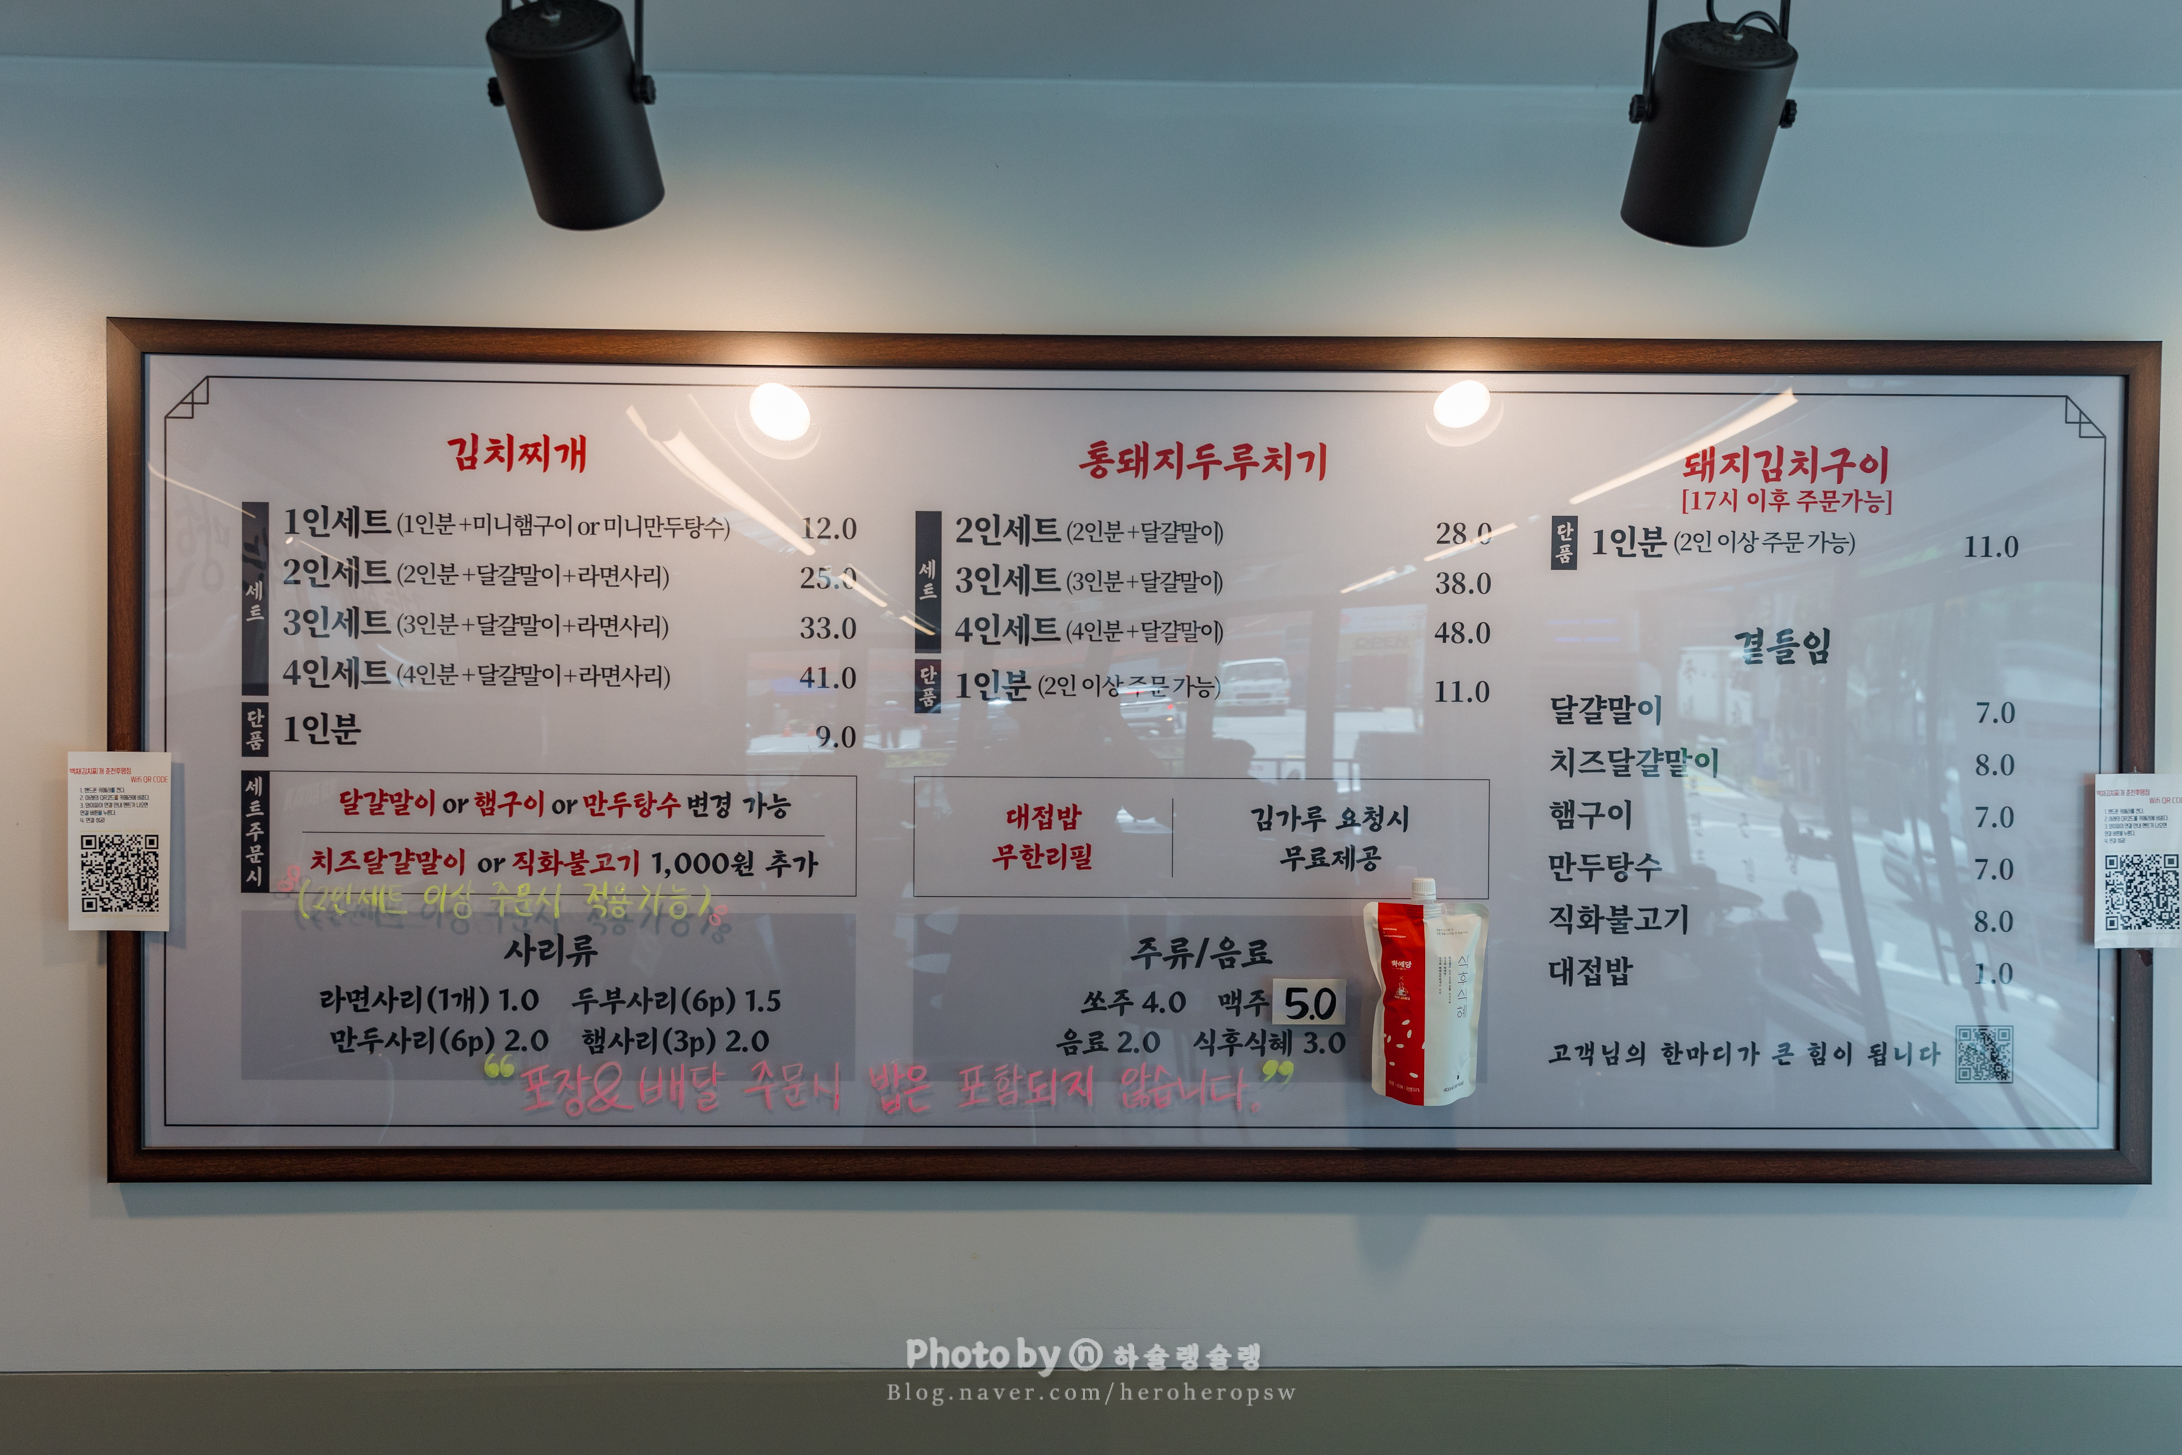 김치찌개
세트
1인세트 (1인분+미니햄구이 or 미니만두탕수) 12.0
2인세트 (2인분+달걀말이+라면사리) 25.0
3인세트 (3인분+달걀말이+라면사리) 33.0
4인세트 (4인분+달걀말이+라면사리) 41.0
단품
1인분 9.0
세트주문시
달걀말이 or 햄구이 or 만두탕수 변경 가능
치즈달걀말이 or 직화불고기 1,000원 추가
(2인세트 이상 주문시 적용가능)
사리류
라면사리(1개) 1.0 두부사리(6p) 1.5
만두사리(6p) 2.0 햄사리(3p) 2.0
통돼지두루치기
세트
2인세트 (2인분+달걀말이) 28.0
3인세트 (3인분+달걀말이) 38.0
4인세트 (4인분+달걀말이) 48.0
단품
1인분 (2인 이상 주문 가능) 11.0
대접밥
무한리필
김가루 요청시
무료제공
주류/음료
쏘주 4.0 맥주 5.0
음료 2.0 식후식혜 3.0
식후식혜
"포장& 배달 주문시 밥은 포함되지 않습니다."
돼지김치구이
[17시 이후 주문가능]
단품
1인분 (2인 이상 주문 가능) 11.0
곁들임
달걀말이 7.0
치즈달걀말이 8.0
햄구이 7.0
만두탕수 7.0
직화불고기 8.0
대접밥 1.0
고객님의 한마디가 큰 힘이 됩니다
Wifi QR CODE
Photo by n 하슬랭슬랭
Blog.naver.com/heroheropsw